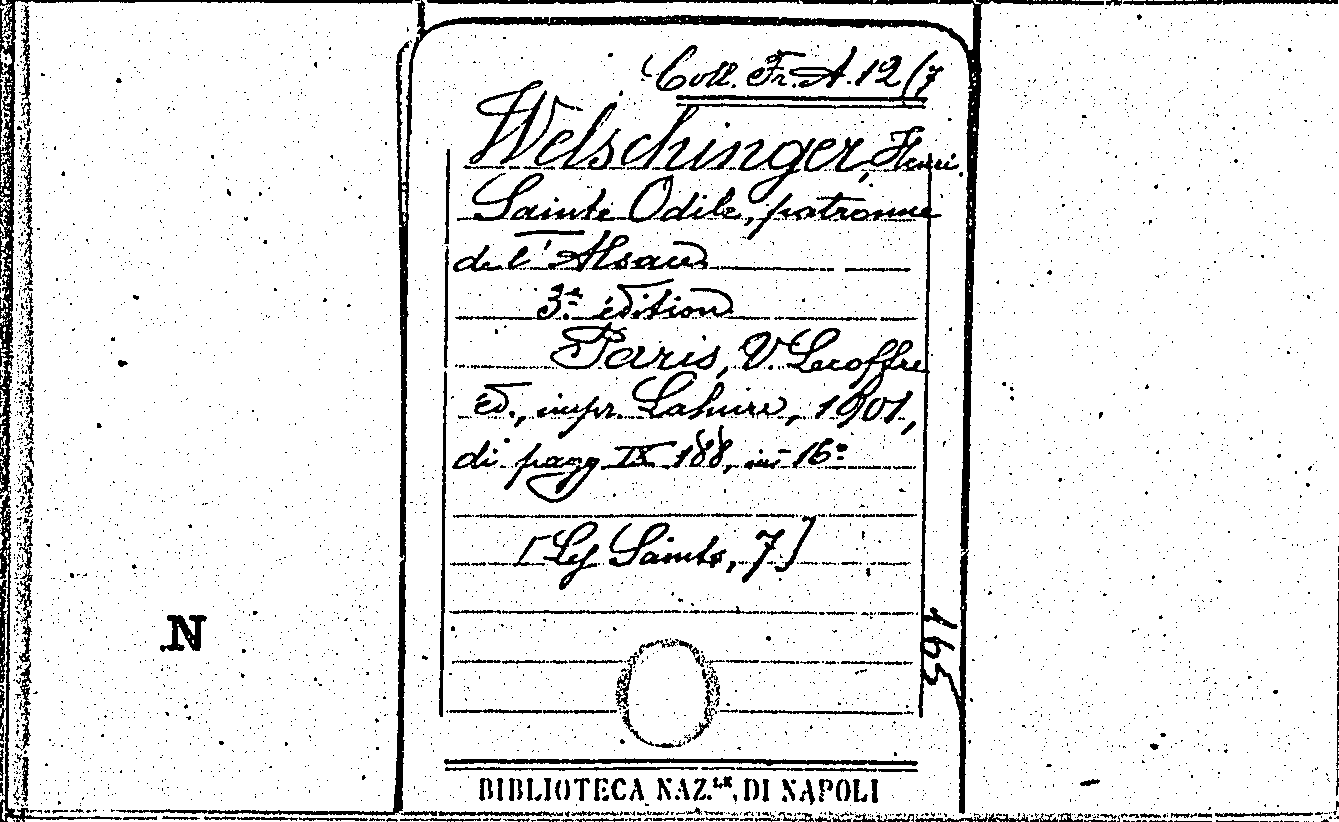 Coll. Fr. A. 12 (7
Welschinger, Henri.
Sainte Odile, patronne
de l'Alsace
3e édition
Paris, V. Lecoffre
éd., impr. Lahure, 1901,
di pagg IX 188, in 16º
[Les Saints, 7]
N
BIBLIOTECA NAZ.LE DI NAPOLI